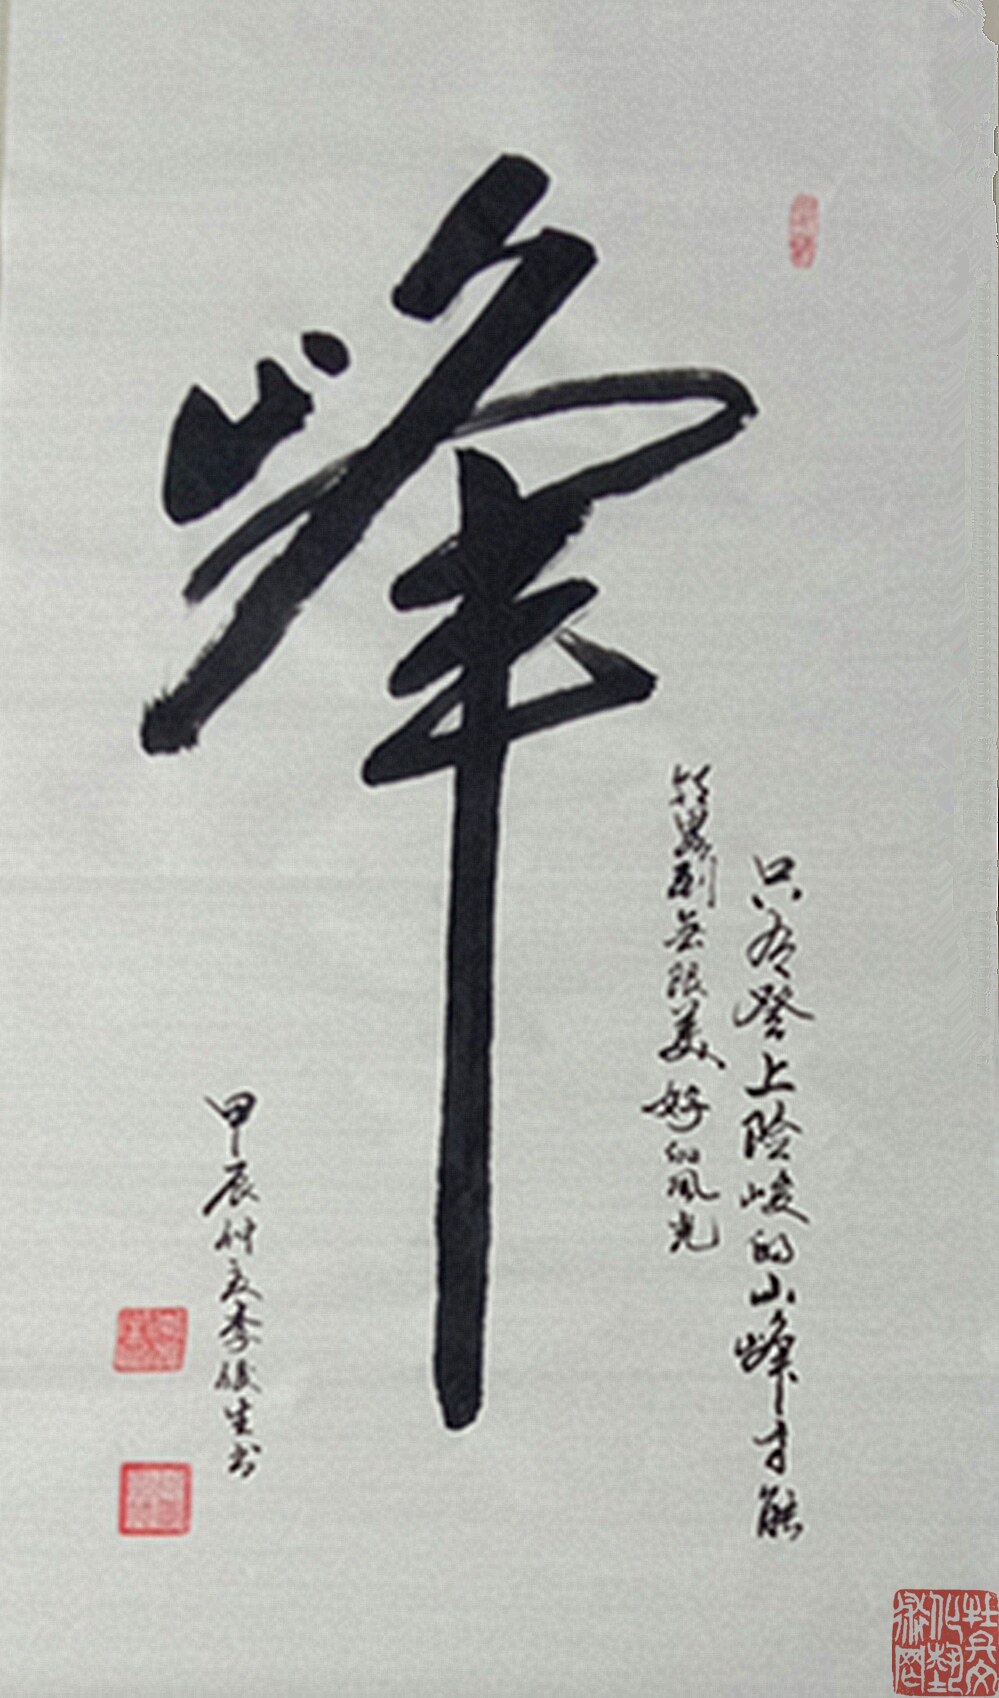 峰
只有登上险峻的山峰才能
领略到无限美好的风光
甲辰仲夏李俊生书